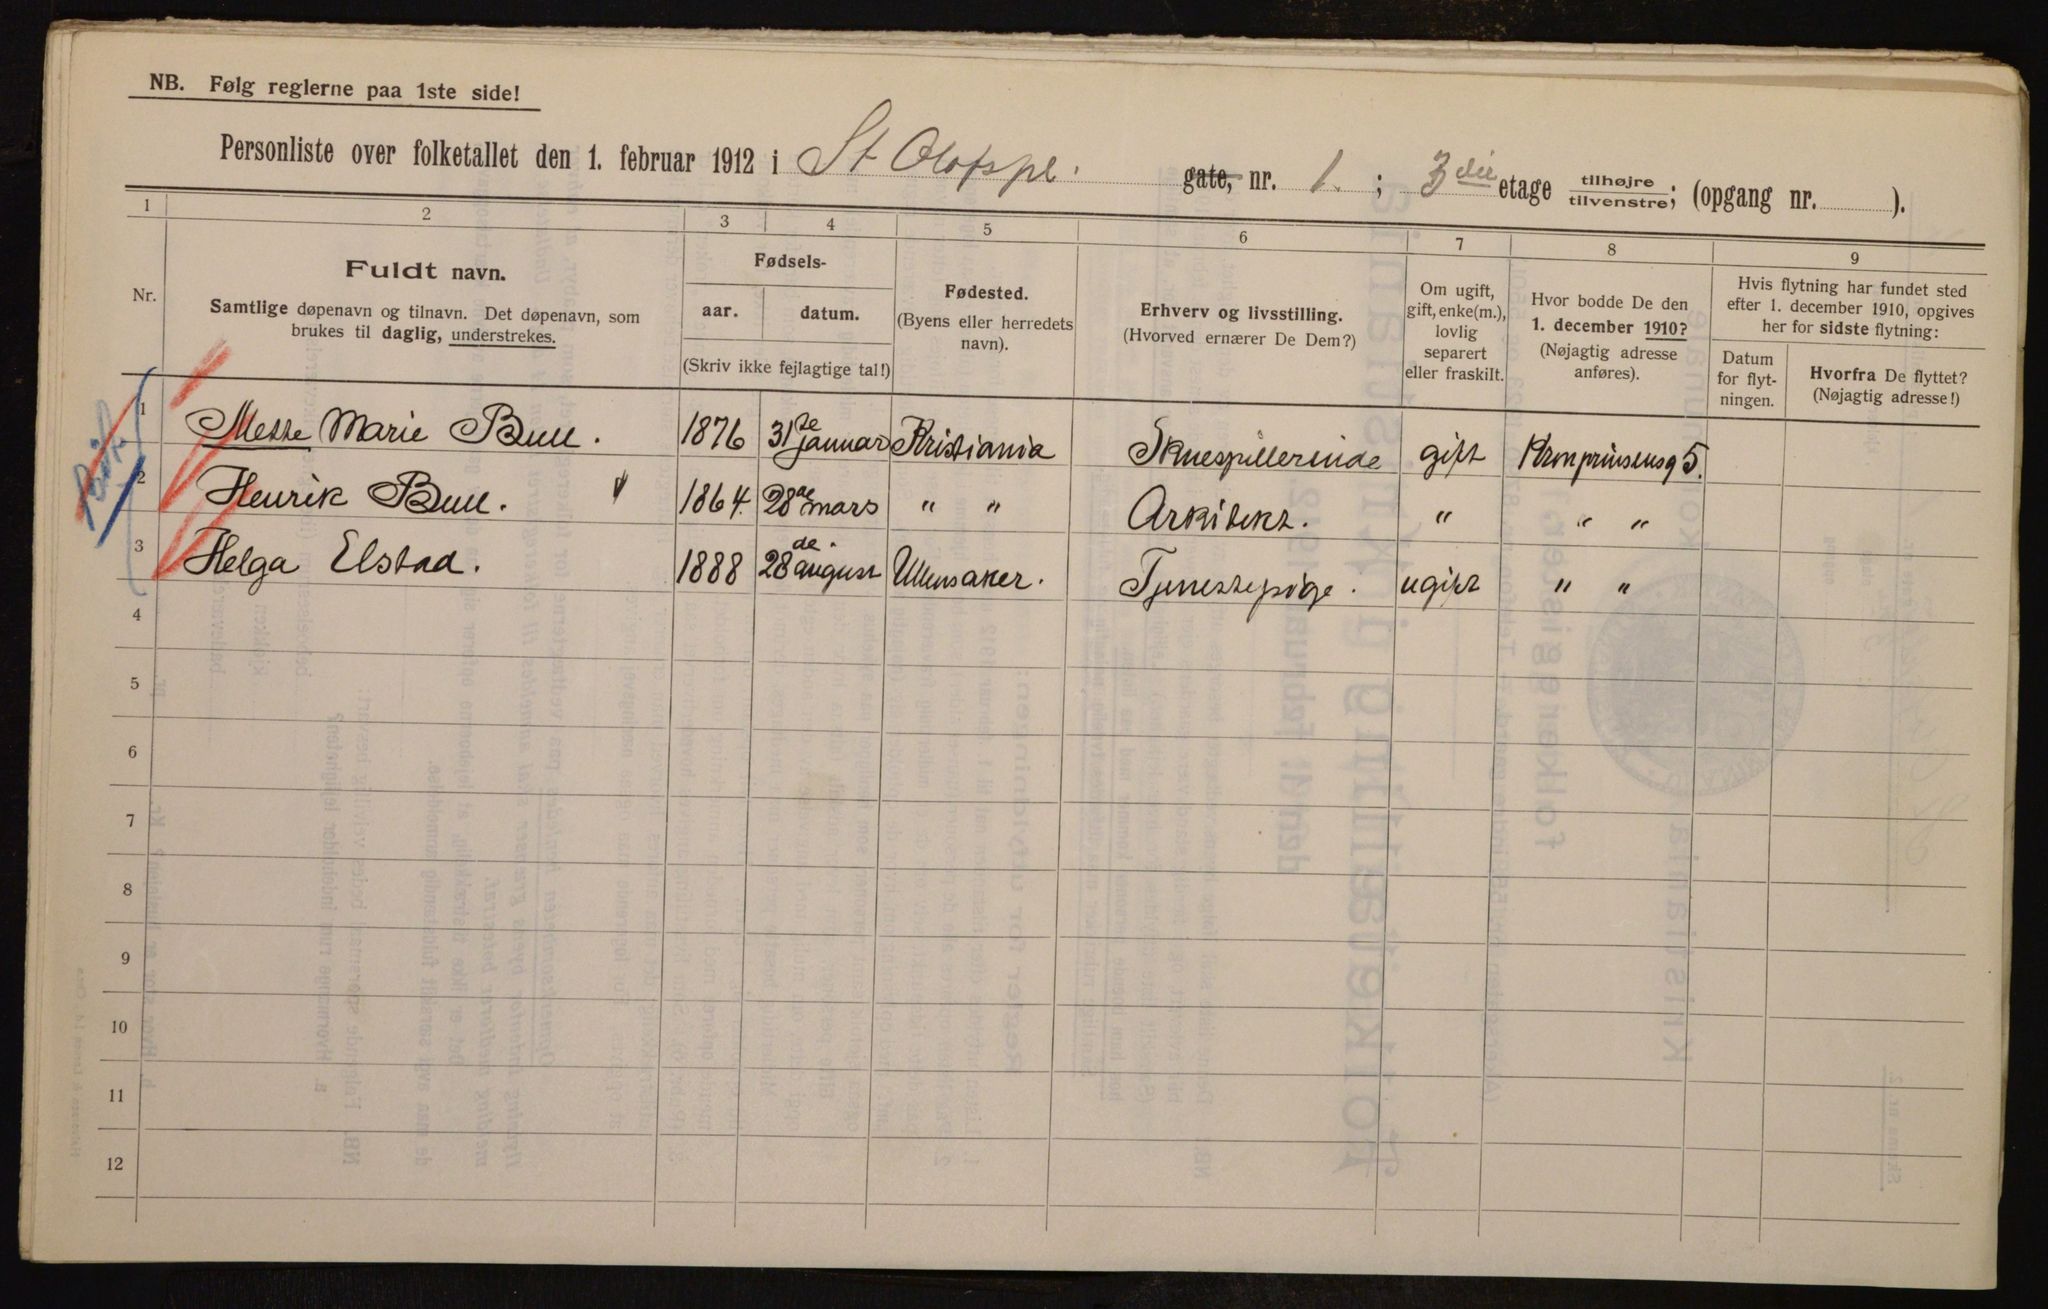 NB. Følg reglerne paa 1ste side!
Personliste over folketallet den 1. februar 1912 i St Olafspl. gate, nr. 1. ; 3die etage tilhøjre/tilvenstre; (opgang nr. ).
1 2 3 4 5 6 7 8 9
Nr.
Fuldt navn.
Samtlige døpenavn og tilnavn. Det døpenavn, som
brukes til daglig, understrekes.
Fødsels-
aar. datum.
(Skriv ikke fejlagtige tal!)
Fødested.
(Byens eller herredets
navn).
Erhverv og livsstilling.
(Hvorved ernærer De Dem?)
Om ugift,
gift, enke(m.),
lovlig
separert
eller fraskilt.
Hvor bodde De den
1. december 1910?
(Nøjagtig adresse
anføres).
Hvis flytning har fundet sted
efter 1. december 1910, opgives
her for sidste flytning:
Datum
for flyt-
ningen.
Hvorfra De flyttet?
(Nøjagtig adresse!)
1 Mette Marie Bull. 1876 31te januar Kristiania Skuespillerinde gift Kronprinsensg 5.
2 Henrik Bull. 1864. 28de mars " " Arkitekt. " " "
3 Helga Elstad. 1888 28de august Ullensaker. Tjenestepige. ugift " "
4
5
6
7
8
9
10
11
12